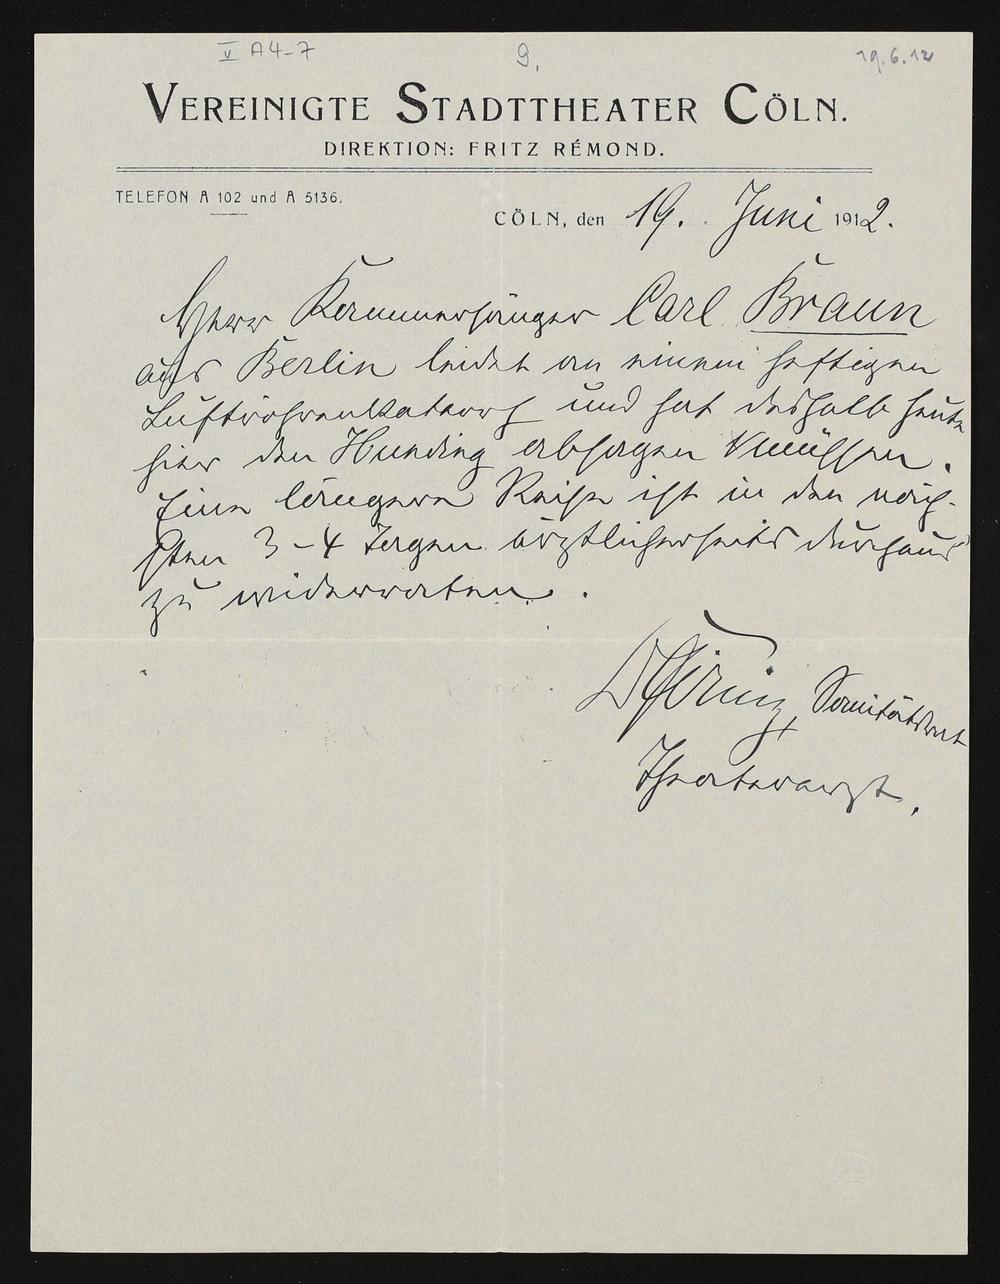 V A4-7 9. 19.6.12
VEREINIGTE STADTTHEATER CÖLN.
DIREKTION: FRITZ RÉMOND.
TELEFON A 102 und A 5136.
CÖLN, den 19. Juni 1912.
Herr Kammersänger Carl Braun
aus Berlin leidet an einem heftigen
Luftröhrenkatarrh und hat deshalb heute
hier den Hunding absagen müssen.
Eine längere Reise ist in den näch-
sten 3-4 Tagen ärztlicherseits durchaus
zu widerraten.
Sanitätsrat
Theaterarzt.